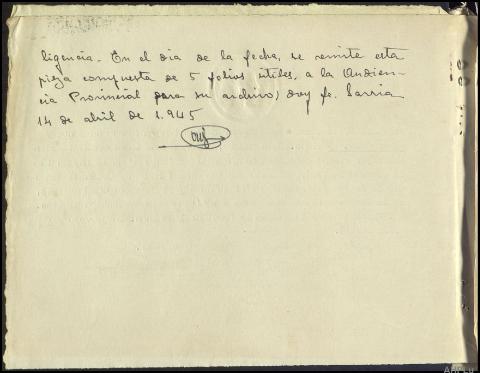 ligencia. En el dia de la fecha, se remite esta
pieza compuesta de 5 folios útiles, a la Audien-
cia Provincial para su archivo, doy fe. Sarria
14 de abril de 1.945